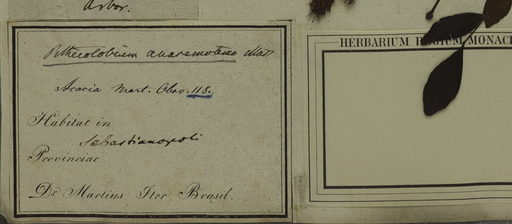 Arbor.
Pithecolobium avaremotemo Mart
Acacia Mart. Obs. 118.
Habitat in
Sebastianopoli
Provinciae
Dr Martius Iter Brasil.
HERBARIUM REGIUM MONAC